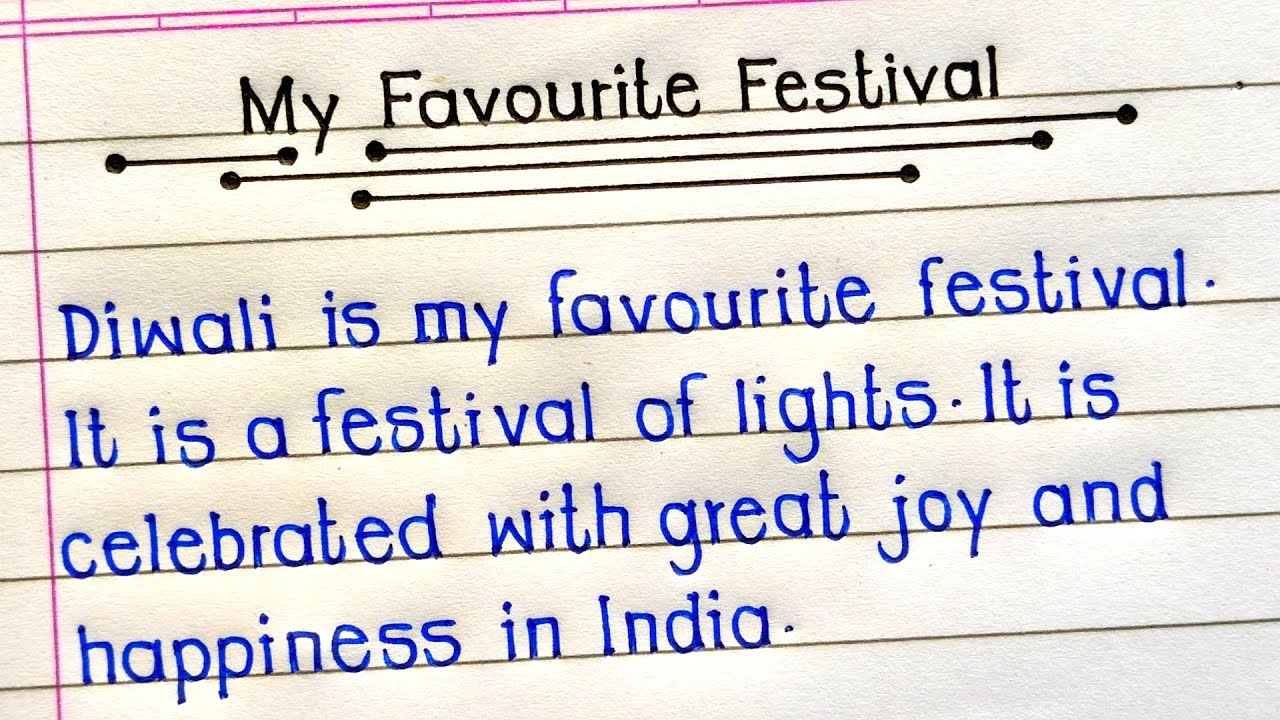 My Favourite Festival
Diwali is my favourite festival.
It is a festival of lights. It is
celebrated with great joy and
happiness in India.